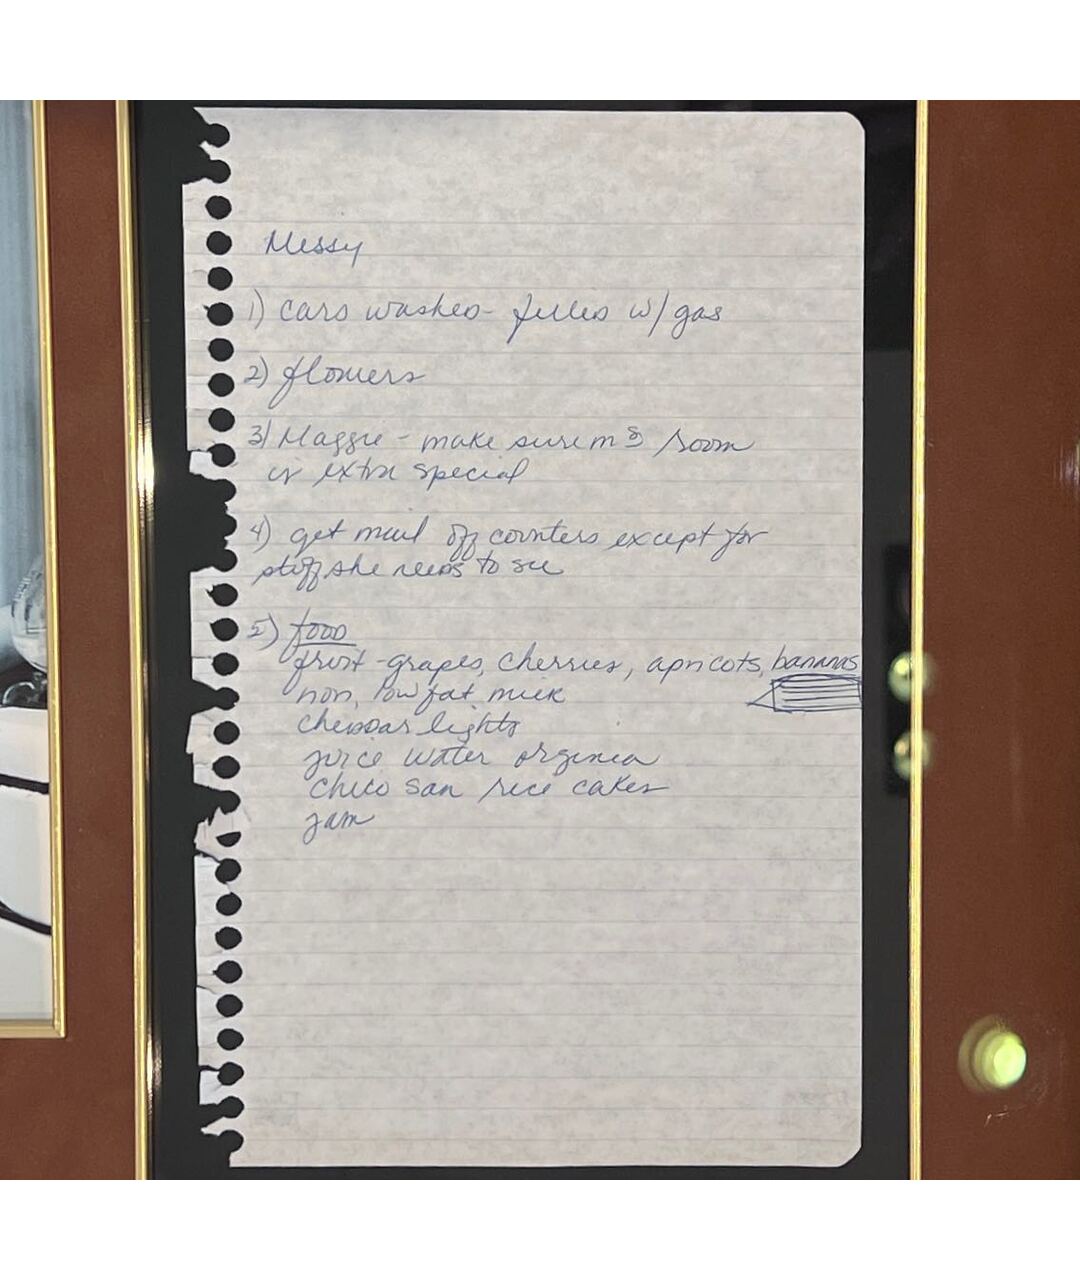 Messy
1) cars washed - filled w/ gas
2) flowers
3) Maggie - make sure m's room
is extra special
4) get mail off counters except for
stuff she needs to see
5) food
fruit - grapes, cherries, apricots, bananas
non, low fat milk
cheddar lights
juice water
chico san rice cakes
jam